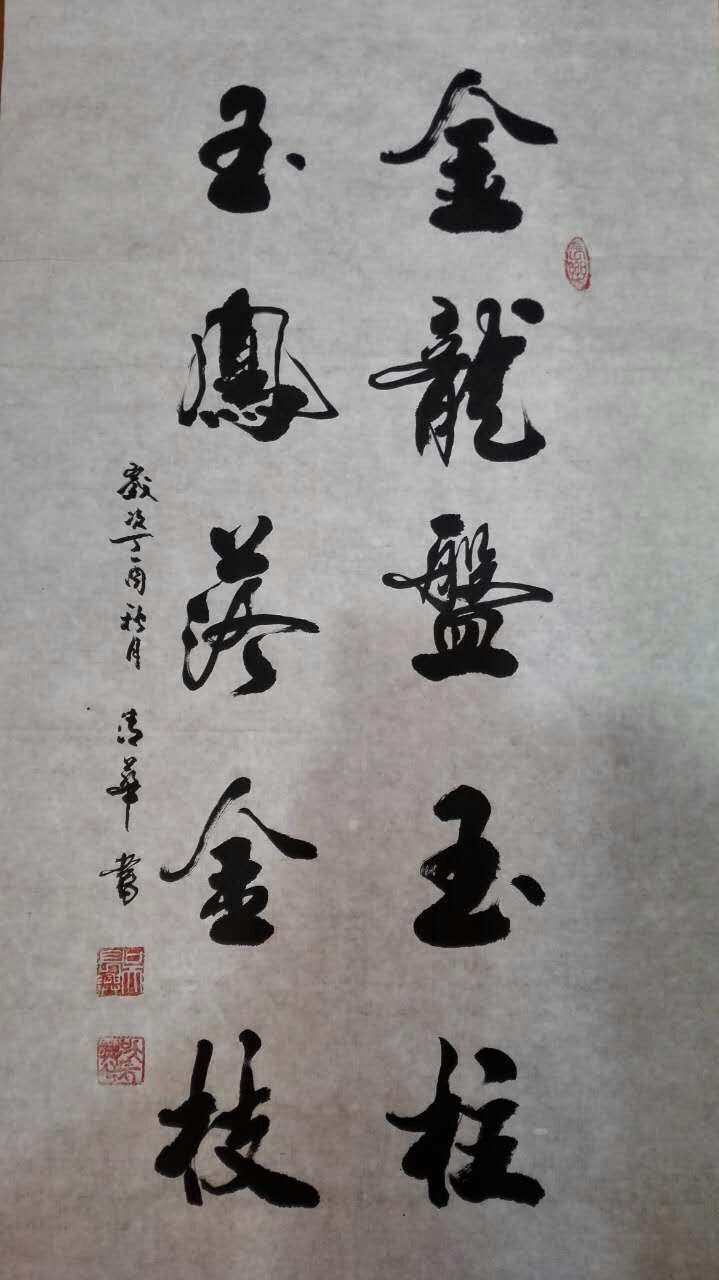 金龍盤玉柱
玉鳳落金枝
歲次丁酉秋月 清華書